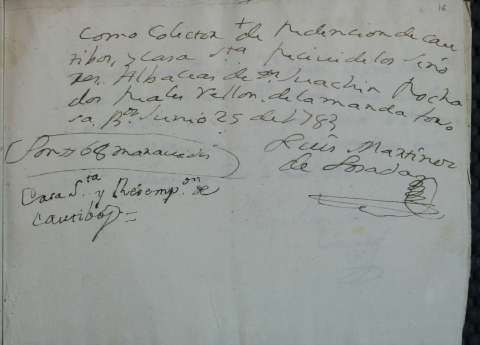 16
Como Colector de Redencion de cau
tibos, y casa Sta recivi de los Seño
res Albaceas de Dn Juachin Rocha
dos reales vellon de la manda forso
sa. Bn Junio 25 de 1783
Son 68 maravedis
Luis Martinez
de
Casa Sta y Redempon de
cautibos